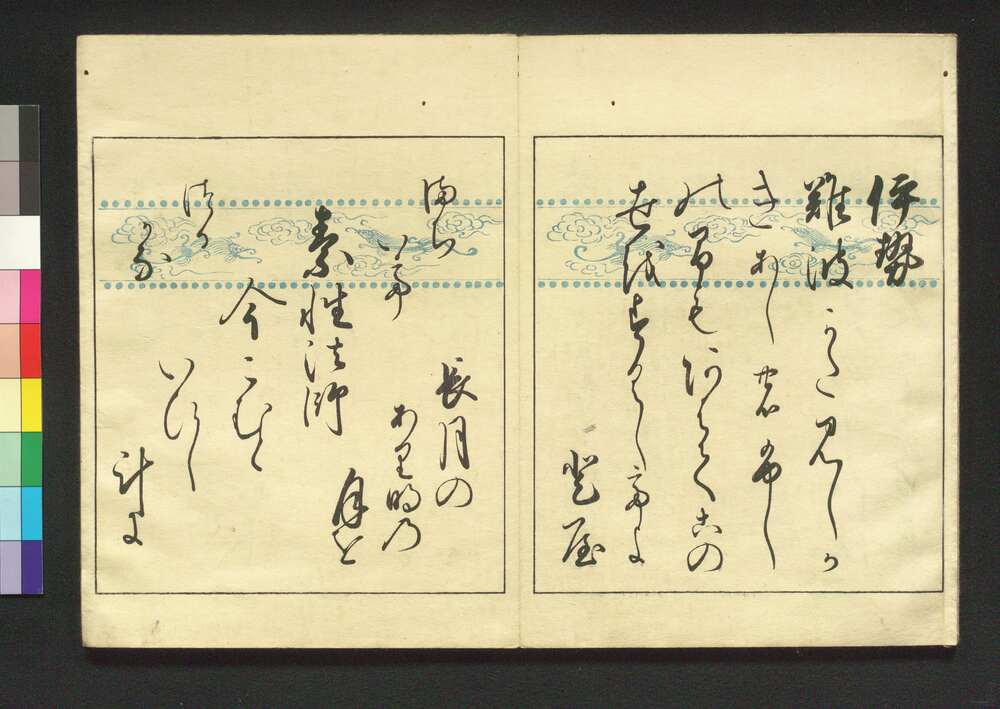 伊勢
難波かた見しか
きあしのふし
のまもあはてこの
世をすくしてよ
登屋
素性法師
今こむと
いひし
計に
長月の
あり明乃
月を
満ち
いて
つる
かな